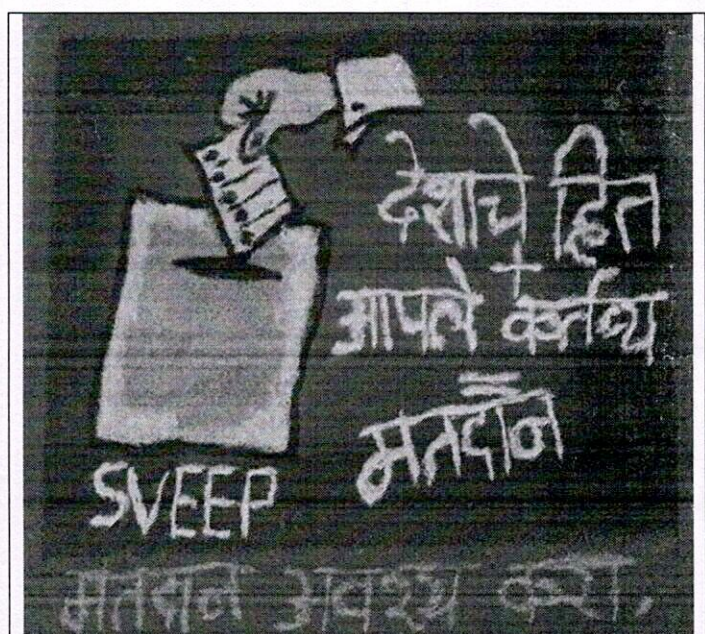 देशाचे हित
+
आपले कर्तव्य
=
मतदान
SVEEP
मतदान अवश्य करा.